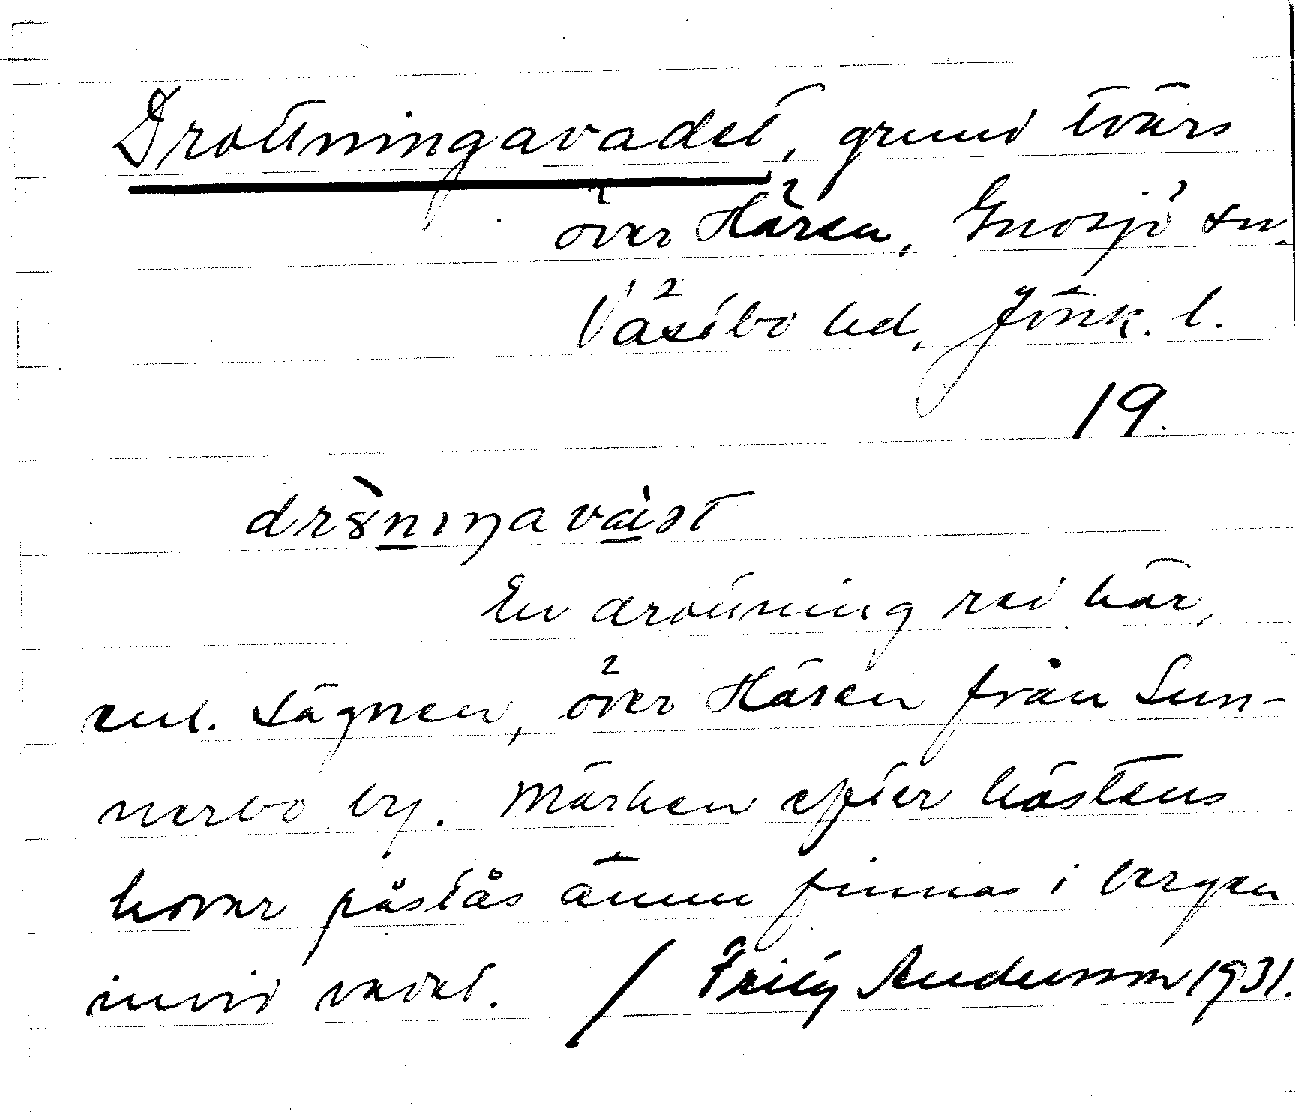 Drottningavadet, grund tvärs
över Hären, Gnosjö sn.
Västbo hd, Jönk. l.
19.
En drottning red här,
enl. sägnen, över Hären från Sun-
nerbo by. Märken efter hästens
hovar påstås ännu finnas i bergen
invid vadet. / Fritz Andersson 1931.